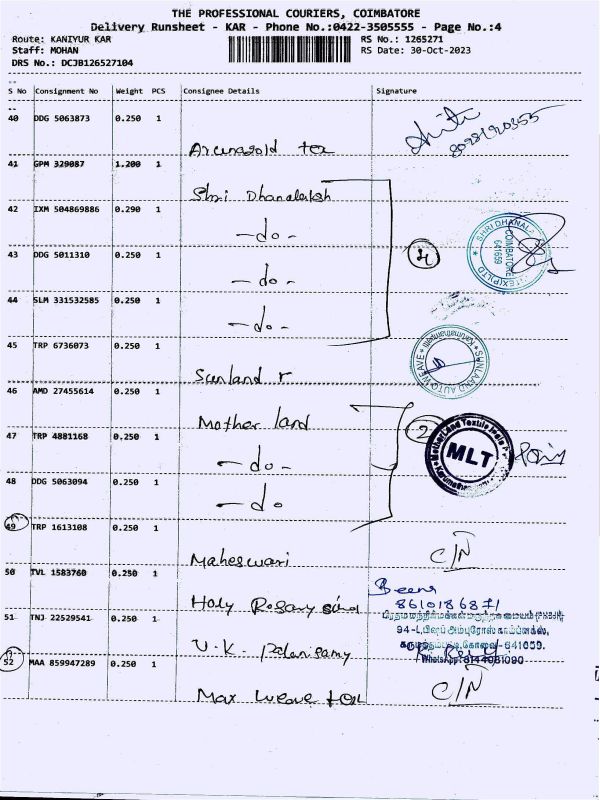 THE PROFESSIONAL COURIERS, COIMBATORE
Delivery Runsheet - KAR - Phone No.:0422-3505555 - Page No.:4
Route: KANIYUR KAR
RS No.: 1265271
Staff: MOHAN
RS Date: 30-Oct-2023
DRS No.: DCJB126527104
S No Consignment No Weight PCS Consignee Details Signature
40 DDG 5063873 0.250 1
Arunagold tex
41 GPM 329087 1.200 1
Shri Dhanalaksh
42 IXM 504869886 0.290 1
-do-
43 DDG 5011310 0.250 1
-do-
SHRI DHANALA TEX(P)LTD
COIMBATORE
641659
44 SLM 331532585 0.250 1
-do-
45 TRP 6736073 0.250 1
Sunland r
SUNLAND AUTOWEAVE
46 AMD 27455614 0.250 1
Mother land
2
47 TRP 4881168 0.250 1
-do-
MLT
48 DDG 5063094 0.250 1
-do
49 TRP 1613108 0.250 1
Maheswari
C/N
50 TVL 1583760 0.250 1
Holy Rosary
Beena
51 TNJ 22529541 0.250 1
94-L,பிஷப் அம்புரோஸ் காம்ப்ளக்ஸ்,
கருமத்தம்பட்டி,கோவை-641659.
V.K. Palanisamy
WhatsApp:8144081090
52 MAA 859947289 0.250 1
C/N
Max weave tex